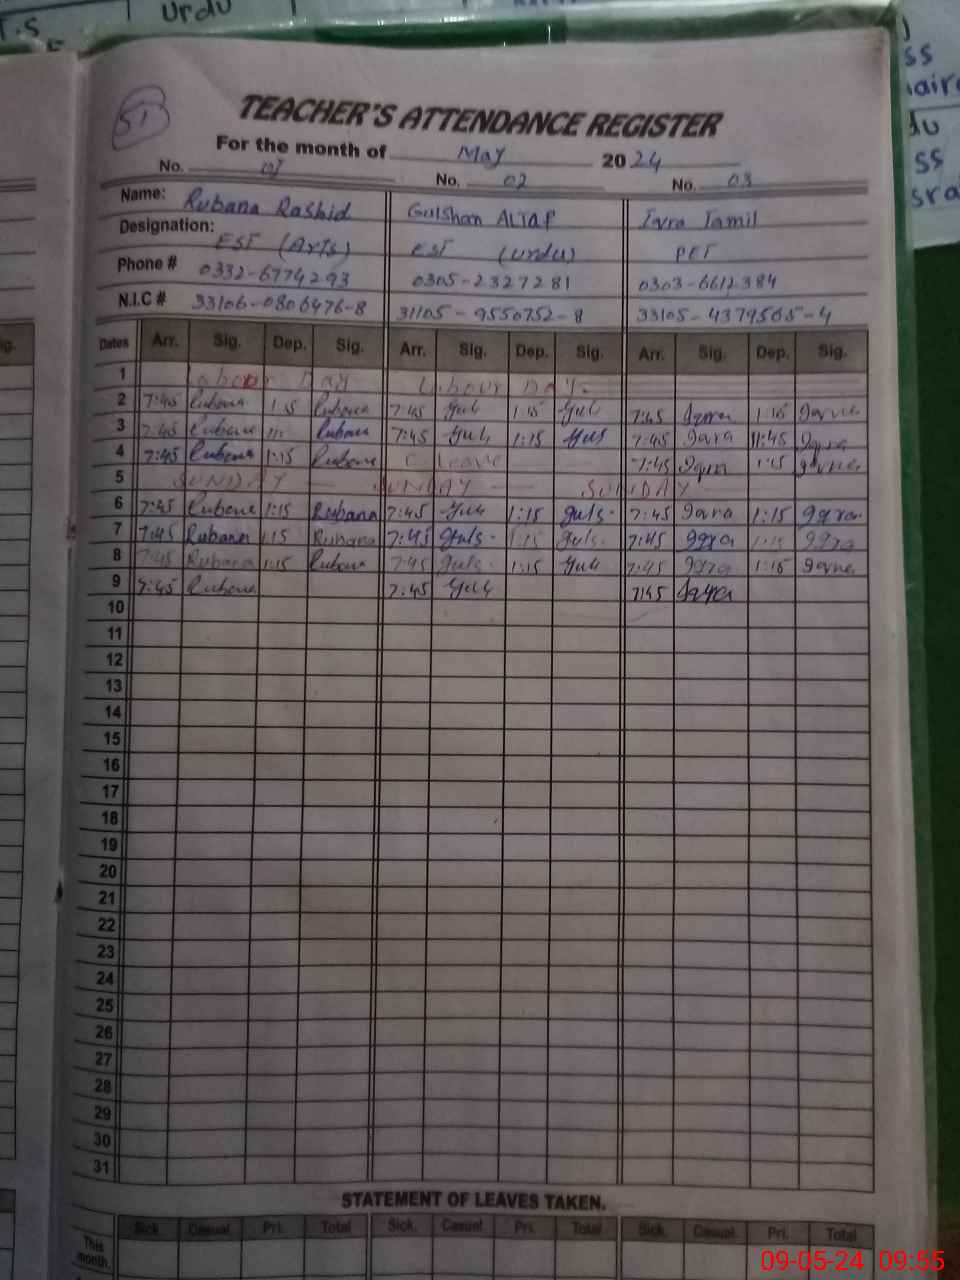 T.S
Urdu
ss
ss
51
TEACHER'S ATTENDANCE REGISTER
For the month of May 2024
No. 01 No. 02 No. 03
Name: Rubana Rashid Gulshan ALTAF Iqra Jamil
Designation: EST (Arts) EST (Urdu) PET
Phone # 0332-6774293 0305-2327281 0303-6612384
N.I.C # 33106-0806476-8 31105-9550752-8 33105-4379565-4
Dates Arr. Sig. Dep. Sig. Arr. Sig. Dep. Sig. Arr. Sig. Dep. Sig.
1 Labour Day Labour Day.
2 7:45 Rubana 1:15 Rubana 7:45 Guls 1:15 Guls 7:45 Iqra 1:15 Iqra
3 7:45 Rubana 11: Rubana 7:45 Guls 1:15 Guls 7:45 Iqra 11:45 Iqra
4 7:45 Rubana 1:15 Rubana C. leave 7:45 Iqra 1:15 Iqra
5 SUNDAY — SUNDAY — SUNDAY
6 7:45 Rubana 1:15 Rubana 7:45 Guls 1:15 Guls. 7:45 Iqra 1:15 Iqra
7 7:45 Rubana 1:15 Rubana 7:45 Guls. 1:15 Guls. 7:45 Iqra 1:15 Iqra
8 7:45 Rubana 1:15 Rubana 7:45 Guls. 1:15 Guls 7:45 Iqra 1:15 Iqra
9 7:45 Rubana 7:45 Guls 7:45 Iqra
10
11
12
13
14
15
16
17
18
19
20
21
22
23
24
25
26
27
28
29
30
31
STATEMENT OF LEAVES TAKEN.
Sick. Casual. Pri. Total Sick. Casual. Pri. Total Sick. Casual. Pri. Total
This month.
09-05-24 09:55